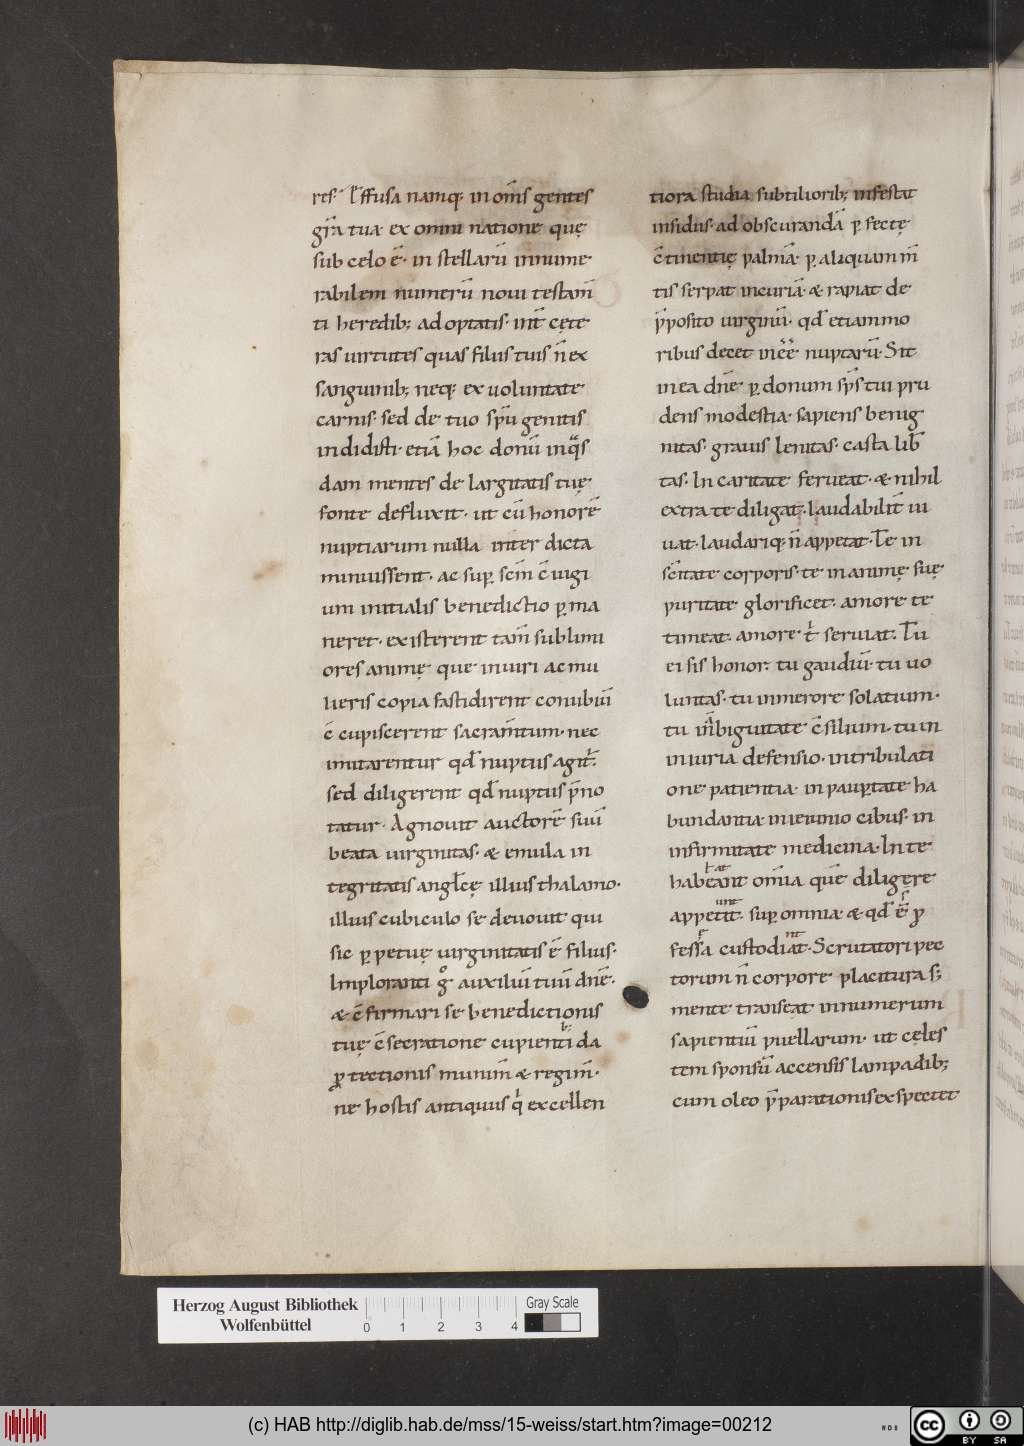 res· Effusa namq; in om̄s gentes
gr̄a tua ex omni natione quę
sub celo ē· in stellarū innume
rabilem numerū noui testam̄
ti heredib; adoptatis· int̄ cęte
ras uirtutes quas filiis tuis n̄ ex
sanguinib; neq; ex uoluntate
carnis· sed de tuo sp̄u genitis
indidisti· etiā hoc donū in qͣs
dam mentes de largitatis tuę
fonte defluxit· ut cū honorē
nuptiarum nulla inter dicta
minuissent· ac suꝑ sc̄m c̄iugi
um initialis benedictio ꝑma
neret· existerent tam̄ sublimi
ores animę que in uiri ac mu
lieris copia fastidirent conubiū
c̄cupiscerent sacram̄tum· nec
imitarentur qd̄ nuptiis agit̄·
sed diligerent qd̄ nuptiis p̄no
tatur· Agnouit auctorē suū
beata uirginitas· & emula in
tegritatis angl̄cę illius thalamo·
illius cubiculo se deuouit qui
sic ꝑpetuę uirginitatis ē filius·
Imploranti gͦ auxiliū tuū dn̄e·
& c̄firmari se benedictionis
tuę c̄secratione cupienti b; da
ꝓtectionis munim̄ & regim̄·
ne hostis antiquus qͥ excellen
tiora studia subtiliorib; infestat
insidiis· ad obscurandā ꝑfectę
c̄tinentię palmā· ꝑ aliquam m̄
tis serpat incuriā· & rapiat de
p̄posito uirginū· qd̄ etiam mo
ribus decet in c̄c̄e nuptarū· Sit
in ea dn̄e ꝑ donum sp̄s tui pru
dens modestia· sapiens benig
nitas· grauis lenitas· casta lib̄
tas· In caritate ferueat· & nihil
extra te diligat· laudabilit̄ ui
uat· laudariq; n̄ appetat· Te in
sc̄itate corporis· te in animę suę
puritate glorificet· amore te
timeat· amore tͥ seruiat· Tu
ei sis honor· tu gaudiū· tu uo
luntas· tu in merore solatium·
tu in ābiguitate c̄silium· tu in
iniuria defensio· in tribulati
one patientia· in pauꝑtate ha
bundantia in ieiunio cibus· in
infirmitate medicina· In te
habeant om̄ia quē diligere
appetit· suꝑ omnia & qd̄ ē ꝓ
fessa custodiat· Scrutatori pec
torum n̄ corpore placitura s;
mente transeat in numerum
sapientiū puellarum· ut cęles
tem sponsū accensis lampadib;
cum oleo p̄parationis exspectet
Herzog August Bibliothek
Wolfenbüttel
0 1 2 3 4
Gray Scale
(c) HAB http://diglib.hab.de/mss/15-weiss/start.htm?image=00212
WDB
cc BY SA